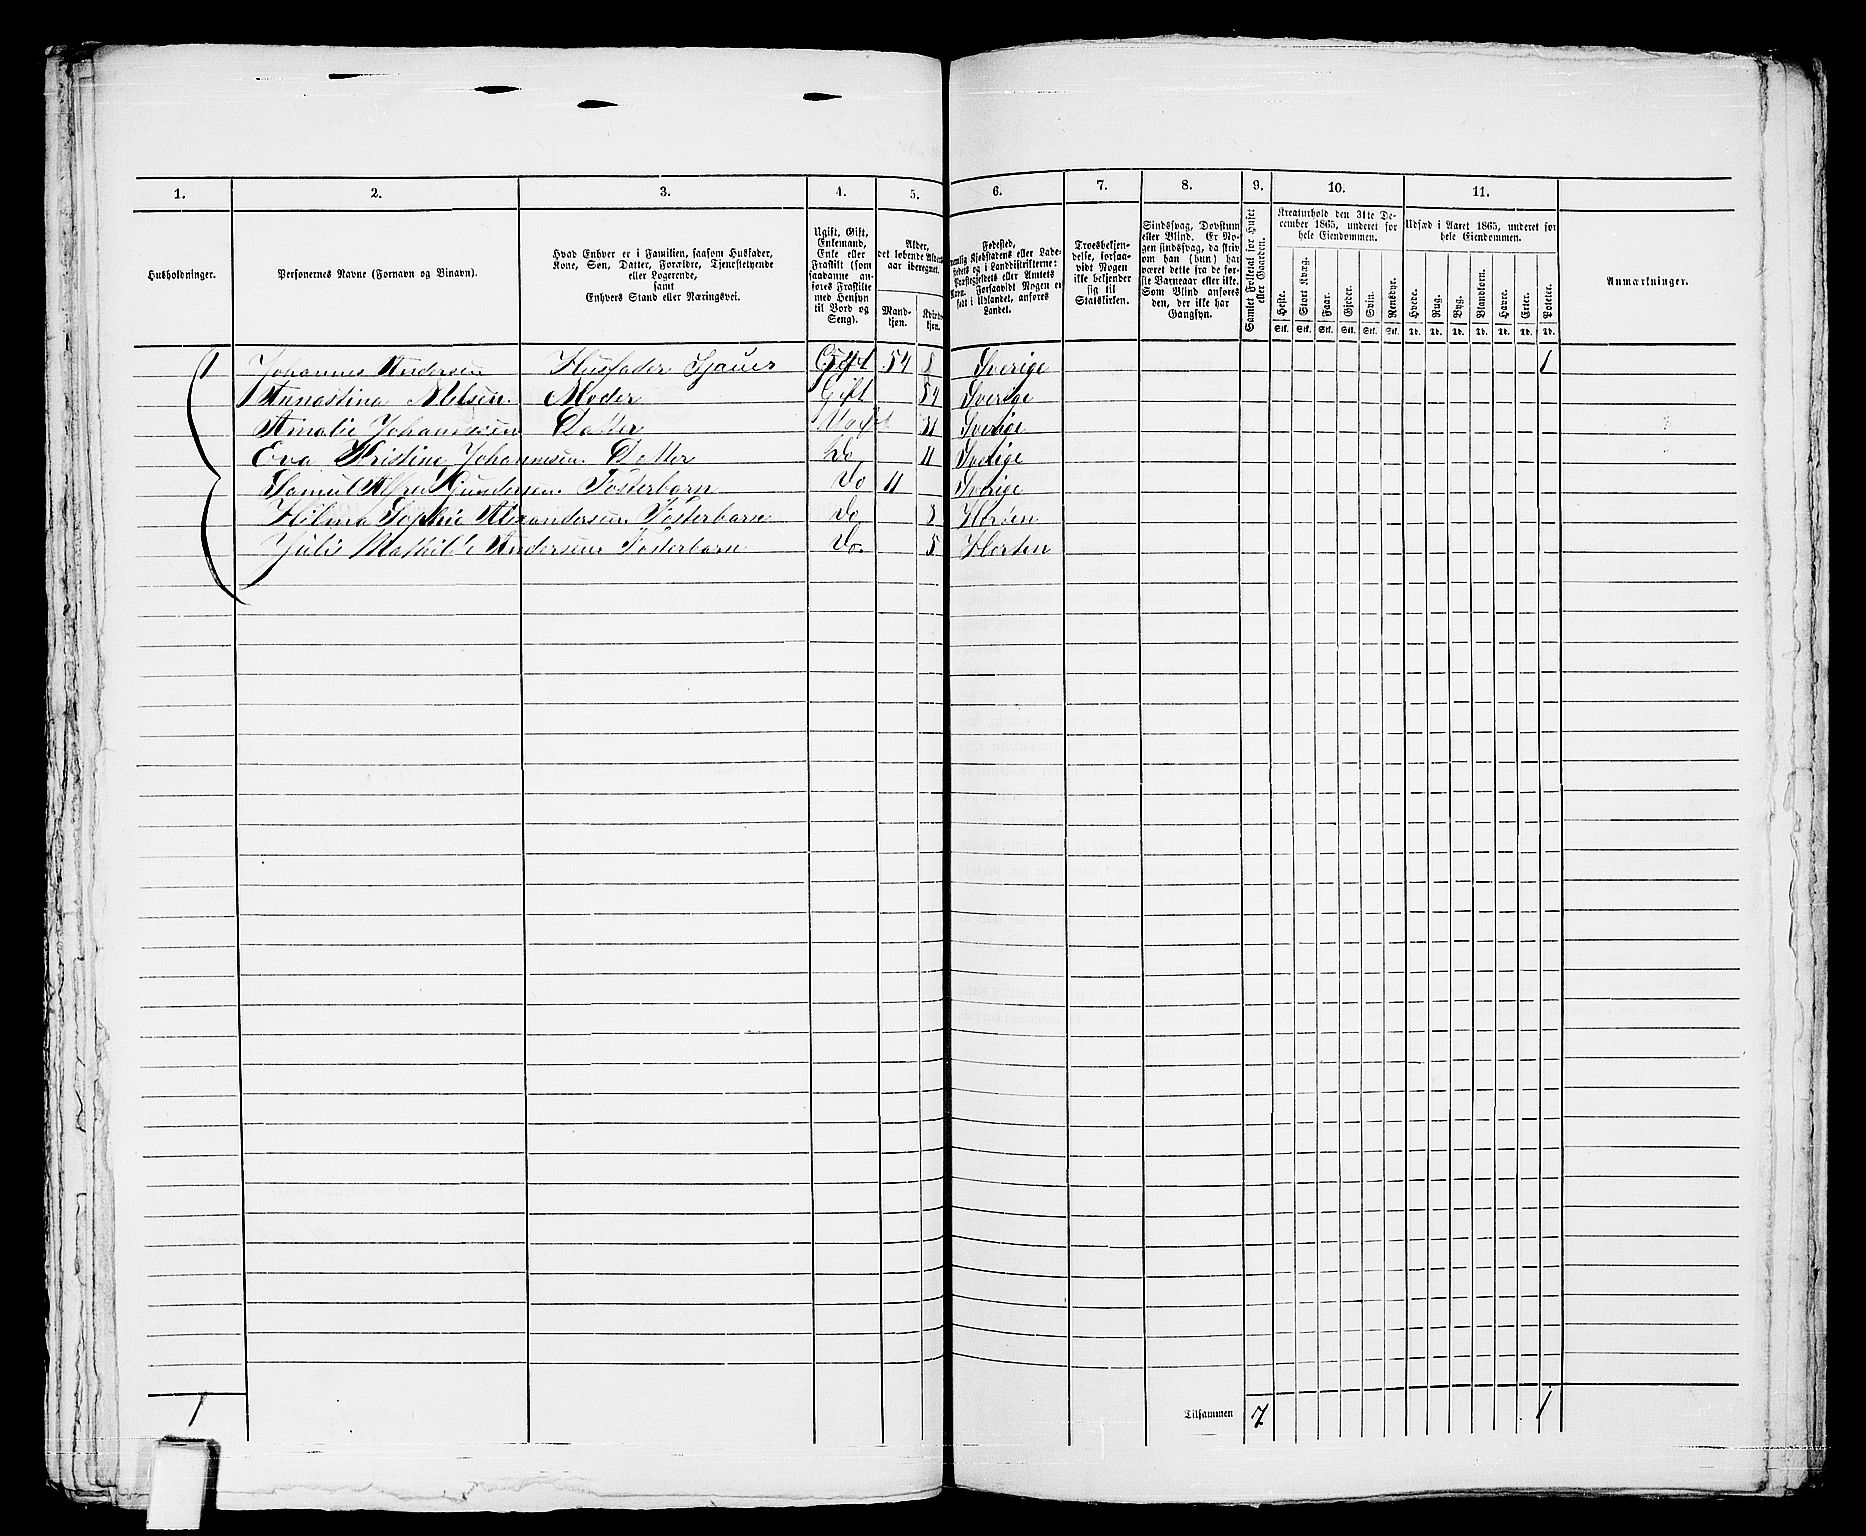 1. 2. 3. 4. 5. 6. 7. 8. 9. 10. 11.
Husholdninger.
Personernes Navne (Fornavn og Binavn).
Hvad Enhver er i Familien, saasom Husfader,
Kone, Søn, Datter, Forældre, Tjenestetyende
eller Logerende,
samt
Enhvers Stand eller Næringsvei.
Ugift, Gift,
Enkemand,
Enke eller
Fraskilt (som
saadanne an-
føres Fraskilte
med Hensyn
til Bord og
Seng).
Alder,
det løbende Alders-
aar iberegnet.
Mand-
kjøn.
Kvinde-
kjøn.
Fødested,
nemlig Kjøbstadens eller Lade-
stedets og i Landdistrikterne:
Præstegjeldets eller Amtets
Navn. Forsaavidt Nogen er
født i Udlandet, anføres
Landet.
Troesbekjen-
delse, forsaa-
vidt Nogen
ikke bekjender
sig til
Statskirken.
Sindssvag, Døvstum
eller Blind. Er No-
gen sindssvag, da skriv
om han (hun) har
været dette fra de før-
ste Barneaar eller ikke.
Som Blind anføres
den, der ikke har
Gangsyn.
Samlet Folketal for Huset
eller Gaarden.
Kreaturhold den 31te De-
cember 1865, underet for
hele Eiendommen.
Heste. Stort Kvæg. Faar. Gjeder. Svin. Rensdyr.
Stk. Stk. Stk. Stk. Stk. Stk.
Udsæd i Aaret 1865, underet for
hele Eiendommen.
Hvede. Rug. Byg. Blandkorn. Havre. Erter. Poteter.
Td. Td. Td. Td. Td. Td. Td.
Anmærkninger.
1 Johannes Andersen Husfader Sjauer Gift 54 Sverige 1
Annastina Nilsen. Moder Gift 54 Sverige
Amalie Johannesen Datter 21 Sverige
Eva Kristine Johannesen. Datter Do 11 Sverige
Samul Alfred Gundersen. Fosterbarn Do 11 Sverige
Hilma Sophie Alexandersen. Fosterbarn Do 3 Horten
Julie Mathilde Andersen Fosterbarn Do. 5 Horten
1 Tilsammen 7 1